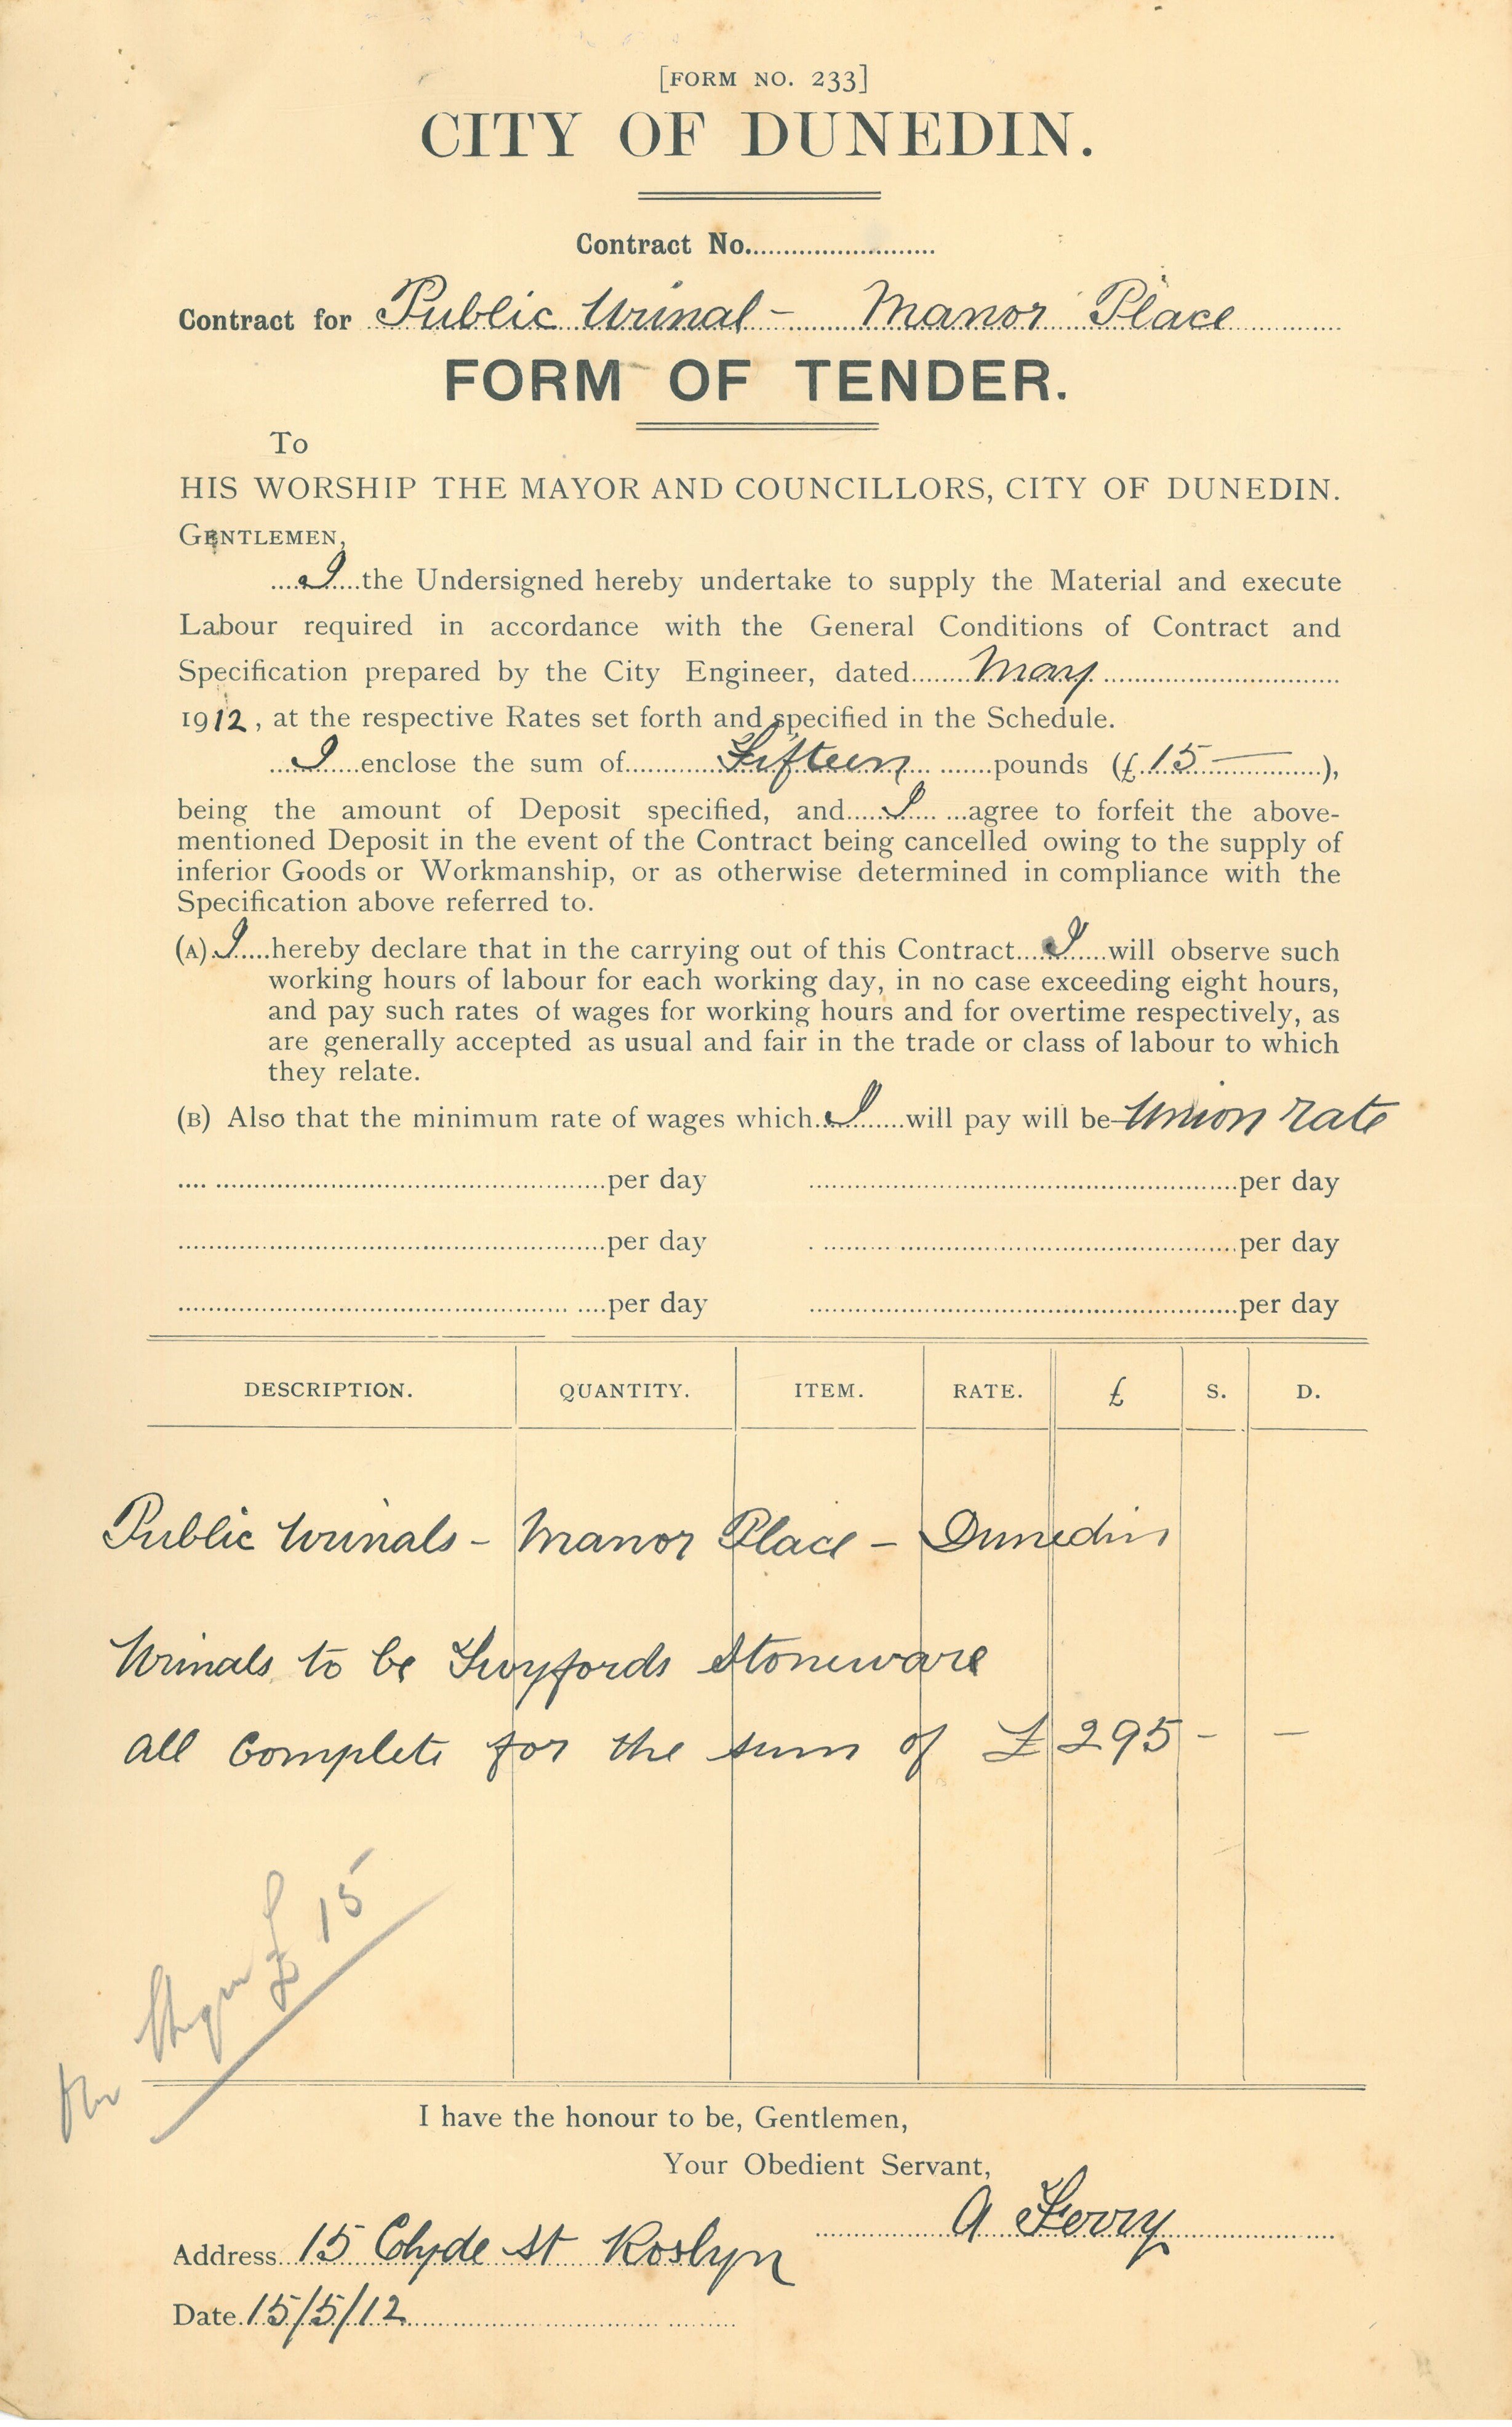 [FORM NO. 233]
CITY OF DUNEDIN.
Contract No.
Contract for Public Urinal - Manor Place
FORM OF TENDER.
To
HIS WORSHIP THE MAYOR AND COUNCILLORS, CITY OF DUNEDIN.
GENTLEMEN,
I the Undersigned hereby undertake to supply the Material and execute
Labour required in accordance with the General Conditions of Contract and
Specification prepared by the City Engineer, dated May
1912, at the respective Rates set forth and specified in the Schedule.
I enclose the sum of Fifteen pounds (£15 —),
being the amount of Deposit specified, and I agree to forfeit the above-
mentioned Deposit in the event of the Contract being cancelled owing to the supply of
inferior Goods or Workmanship, or as otherwise determined in compliance with the
Specification above referred to.
(A) I hereby declare that in the carrying out of this Contract I will observe such
working hours of labour for each working day, in no case exceeding eight hours,
and pay such rates of wages for working hours and for overtime respectively, as
are generally accepted as usual and fair in the trade or class of labour to which
they relate.
(B) Also that the minimum rate of wages which I will pay will be Union rate
per day per day
per day per day
per day per day
DESCRIPTION. QUANTITY. ITEM. RATE. £ S. D.
Public Urinals - Manor Place - Dunedin
Urinals to be Twyfords Stoneware
all Complete for the sum of £295 - -
£15
I have the honour to be, Gentlemen,
Your Obedient Servant,
A Ferry
Address 15 Clyde St Roslyn
Date 15/5/12